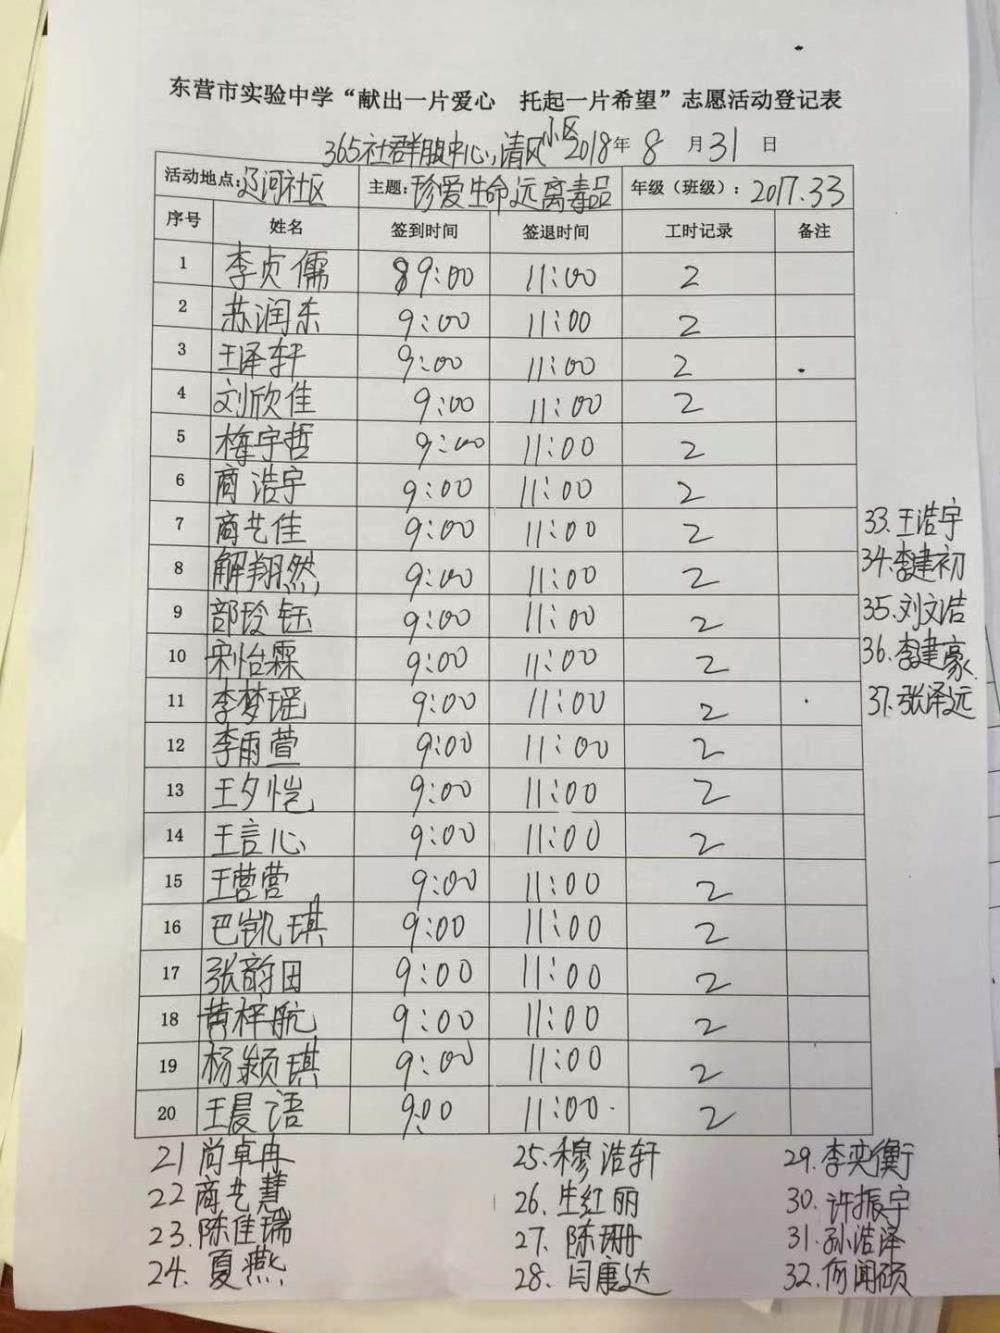 东营市实验中学“献出一片爱心 托起一片希望”志愿活动登记表
365社群服中心,清风小区 2018年 8 月 31 日
活动地点:辽河社区 主题:珍爱生命远离毒品 年级(班级):2017.33
序号 姓名 签到时间 签退时间 工时记录 备注
1 李贞儒 9:00 11:00 2
2 苏润东 9:00 11:00 2
3 王泽轩 9:00 11:00 2
4 刘欣佳 9:00 11:00 2
5 梅宇哲 9:00 11:00 2
6 商浩宇 9:00 11:00 2
7 商艺佳 9:00 11:00 2
8 解翔然 9:00 11:00 2
9 部玲钰 9:00 11:00 2
10 宋怡霖 9:00 11:00 2
11 李梦瑶 9:00 11:00 2
12 李雨萱 9:00 11:00 2
13 王夕恺 9:00 11:00 2
14 王言心 9:00 11:00 2
15 王营营 9:00 11:00 2
16 巴凯琪 9:00 11:00 2
17 张韵田 9:00 11:00 2
18 黄梓航 9:00 11:00 2
19 杨颖琪 9:00 11:00 2
20 王晨语 9:00 11:00 2
33.王浩宇
34.李建初
35.刘文洁
36.李建豪
37.张泽远
21 尚卓冉 25.穆浩轩 29.李奕衡
22 商艺慧 26.生红丽 30.许振宇
23.陈佳瑞 27.陈珊 31.孙浩泽
24.夏燕 28.闫康达 32.何闻硕